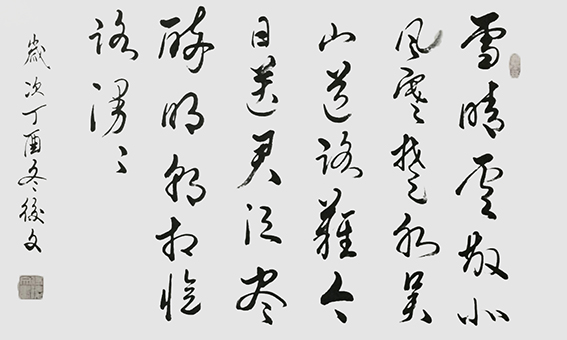 雪晴雲散北
風寒楚水吴
山道路難今
日送君须尽
醉明朝相憶
路漫〻
歲次丁酉冬後文